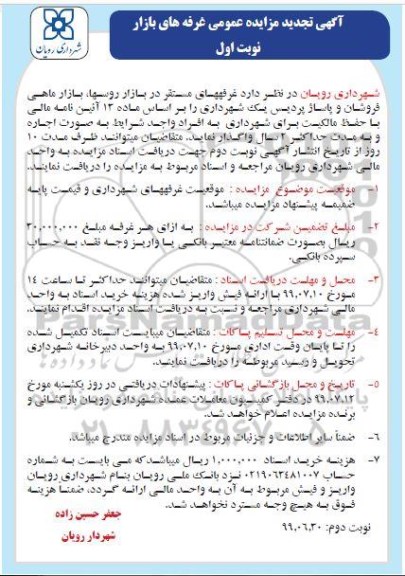 آگهی تجدید مزایده عمومی غرفه های بازار
نوبت اول
شهرداری رویان
شهرداری رویان در نظر دارد غرفههای مستقر در بازار روسها، بازار ماهی
فروشان و پاساژ پردیس یک شهرداری را بر اساس ماده ۱۳ آئین نامه مالی
با حفظ مالکیت برای شهرداری به افراد واجد شرایط به صورت اجاره
و به مدت حداکثر ۲ سال واگذار نماید. متقاضیان میتوانند ظرف مدت ۱۰
روز از تاریخ انتشار آگهی نوبت دوم جهت دریافت اسناد مزایده به واحد
مالی شهرداری رویان مراجعه و اسناد مربوط به مزایده را دریافت نمایند.
۱- موقعیت موضوع مزایده : موقعیت غرفههای شهرداری و قیمت پایه
ضمیمه پیشنهاد مزایده میباشد.
۲- مبلغ تضمین شرکت در مزایده : به ازای هر غرفه مبلغ ۲۰,۰۰۰,۰۰۰
ریال بصورت ضمانتنامه معتبر بانکی یا واریز وجه نقد به حساب
سپرده بانکی.
۳- محل و مهلت دریافت اسناد : متقاضیان میتوانند حداکثر تا ساعت ۱۴
مورخ ۹۹.۰۷.۱۰ با ارائه فیش واریز شده هزینه خرید اسناد به واحد
مالی شهرداری مراجعه و نسبت به دریافت اسناد مزایده اقدام نمایند.
۴- مهلت و محل تسلیم پاکات : متقاضیان میبایست اسناد تکمیل شده
را تا پایان وقت اداری مورخ ۹۹.۰۷.۱۰ به واحد دبیرخانه شهرداری
تحویل و رسید مربوطه را دریافت نمایند.
۵- تاریخ و محل بازگشائی پاکات : پیشنهادات دریافتی در روز یکشنبه مورخ
۹۹.۰۷.۱۲ در دفتر کمیسیون معاملات عمده شهرداری رویان بازگشائی و
برنده مزایده اعلام خواهد شد.
۶- ضمناً سایر اطلاعات و جزئیات مربوط در اسناد مزایده مندرج میباشد.
۷- هزینه خرید اسناد ۱,۰۰۰,۰۰۰ ریال میباشد که می بایست به شماره
حساب ۰۲۱۹۰۶۳۴۸۱۰۰۷ نزد بانک ملی رویان بنام شهرداری رویان
واریز و فیش مربوط به آن به واحد مالی ارائه گردد. ضمنا هزینه
فوق به هیچ وجه مسترد نخواهد شد.
جعفر حسین زاده
شهردار رویان
نوبت دوم: ۹۹.۰۶.۳۰